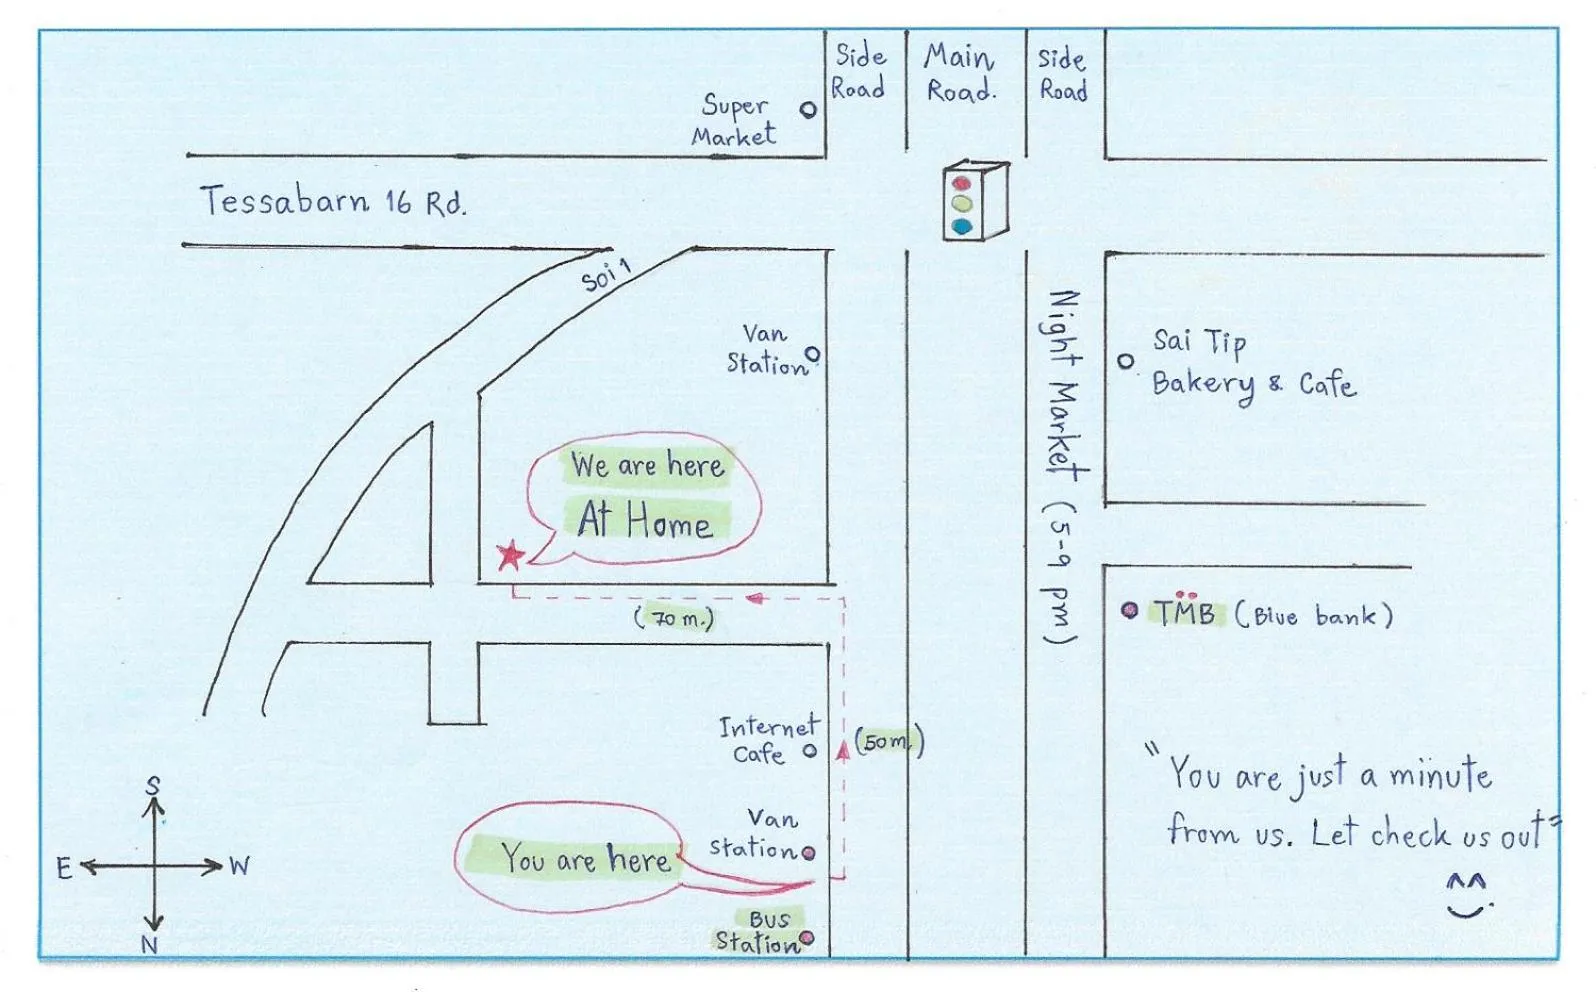 Side
Road
Main
Road.
Side
Road
Super
Market
Tessabarn 16 Rd.
Soi 1
Van
Station
Night Market (5-9 pm)
Sai Tip
Bakery & Cafe
We are here
At Home
(70 m.)
TMB (Blue bank)
Internet
Cafe
(50m.)
"You are just a minute
from us. Let check us out"
S
E
W
N
Van
Station
You are here
Bus
Station